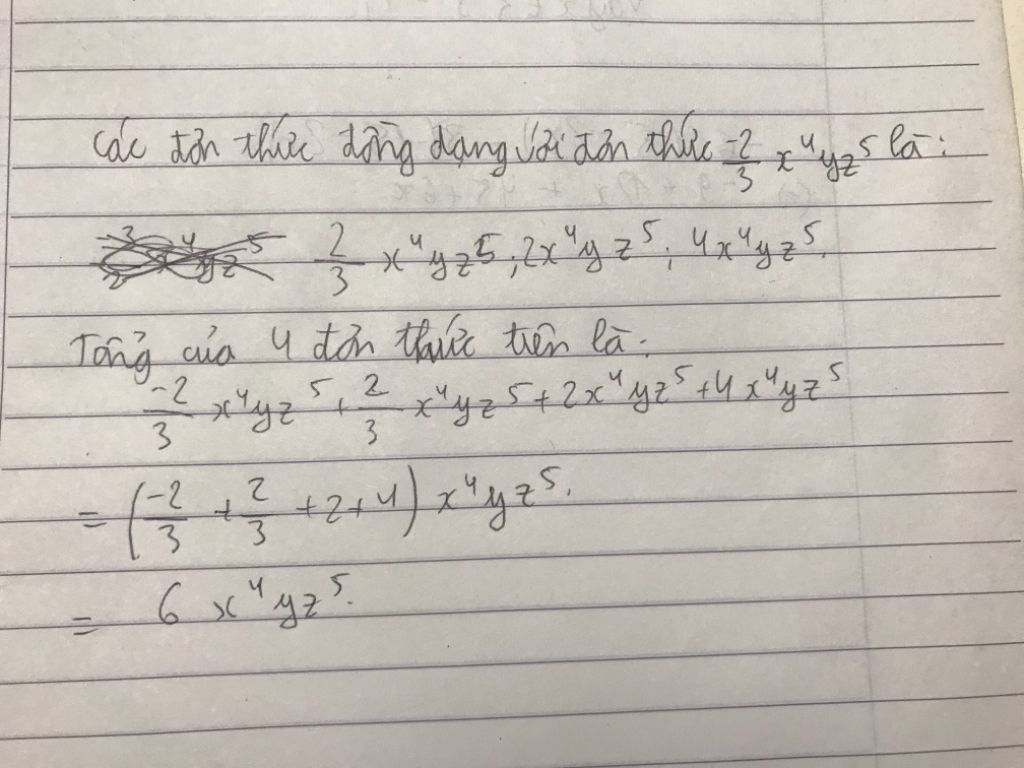 Các đơn thức đồng dạng với đơn thức -2/3 x⁴yz⁵ là:
2/3 x⁴yz⁵; 2x⁴yz⁵; 4x⁴yz⁵.
Tổng của 4 đơn thức trên là:
-2/3 x⁴yz⁵ + 2/3 x⁴yz⁵ + 2x⁴yz⁵ + 4x⁴yz⁵
= (-2/3 + 2/3 + 2 + 4) x⁴yz⁵.
= 6 x⁴yz⁵.